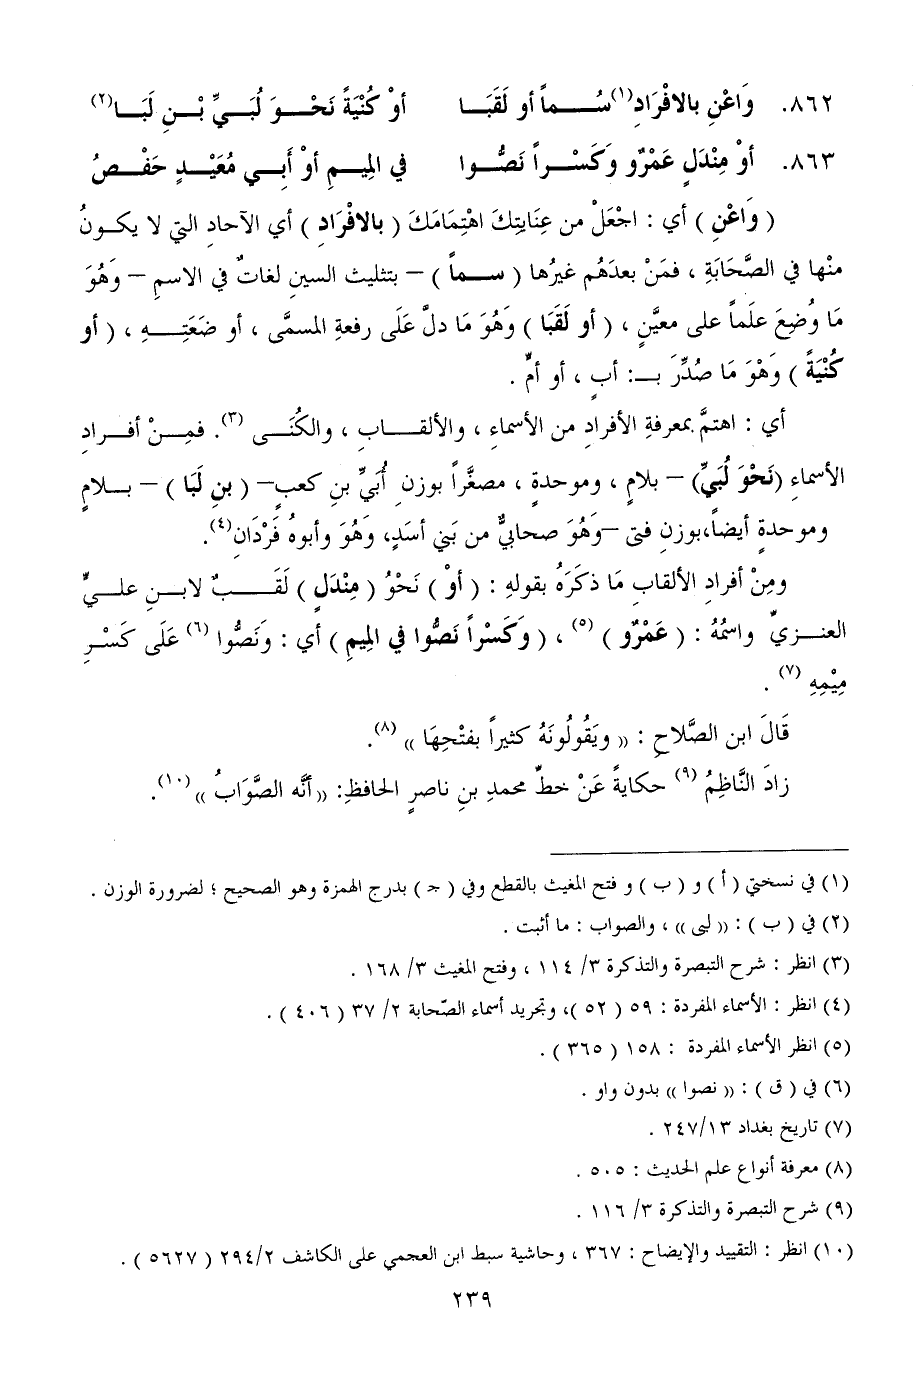 ٨٦٢. وَاعْنِ بالافْرَادِ(١) سُـــماً أو لَقَبَا أوْ كُنْيَةً نَحْــوَ لُبَــيِّ بْــنِ لَبَــا(٢)
٨٦٣. أوْ مِنْدَلٍ عَمْرٌو وَكَسْــراً نَصُّــوا في المِيــمِ أوْ أَبِــي مُعَيْــدٍ حَفْــصُ
( وَاعْنِ ) أي : اجْعَلْ من عِنايتِكَ اهْتِمَامَكَ ( بالافْرَادِ ) أي الآحادِ التي لا يكــونُ
منْها في الصَّحَابَةِ ، فمَنْ بعدَهُم غيرُها ( ســماً ) – بتثليث السينِ لغاتٌ في الاسمِ – وهُوَ
مَا وُضِعَ علَماً على معيَّنٍ ، ( أو لَقَبَا ) وَهُوَ مَا دلَّ عَلَى رفعةِ المسمَّى ، أو ضَعَتِــهِ ، ( أو
كُنْيَةً ) وَهْوَ مَا صُدِّرَ بــ: أبٍ ، أو أمٍّ .
أي : اهتمَّ بمعرفةِ الأفرادِ من الأسماءِ ، والألقــابِ ، والكُنَــى (٣). فمِــنْ أفــرادِ
الأسماءِ (نَحْوَ لُبَيِّ) – بلامٍ ، وموحدةٍ ، مصغَّراً بوزنِ أُبَيِّ بنِ كعبٍ– ( بنِ لَبَا ) – بــلامٍ
وموحدةٍ أيضاً،بوزنِ فتى –وَهُوَ صحابيٌّ من بَني أسَدٍ، وَهُوَ وأبوهُ فَرْدَانِ(٤).
ومِنْ أفرادِ الألقابِ مَا ذكَرَهُ بقولهِ : ( أوْ ) نَحْوُ ( مِنْدَلٍ ) لَقَــبٌ لابــنِ علــيٍّ
العنــزيِّ واسمُهُ : ( عَمْرٌو ) (٥) ، ( وَكَسْراً نَصُّوا في المِيمِ ) أي : ونَصُّوا (٦) عَلَى كَسْــرِ
مِيْمِهِ (٧) .
قَالَ ابن الصَّلاحِ : (( ويَقُولُونَهُ كثيراً بفتْحِهَا )) (٨).
زادَ النَّاظِمُ (٩) حكايةً عَنْ خطِّ محمدِ بنِ ناصرٍ الحافظِ: (( أنَّه الصَّوَابُ )) (١٠).
(١) في نسختي ( أ ) و ( ب ) و فتح المغيث بالقطع وفي ( جـ ) بدرج الهمزة وهو الصحيح ؛ لضرورة الوزن .
(٢) في ( ب ) : (( لبى )) ، والصواب : ما أثبت .
(٣) انظر : شرح التبصرة والتذكرة ٣/ ١١٤ ، وفتح المغيث ٣/ ١٦٨ .
(٤) انظر : الأسماء المفردة : ٥٩ ( ٥٢ )، وتجريد أسماء الصّحابة ٢/ ٣٧ ( ٤٠٦ ) .
(٥) انظر الأسماء المفردة : ١٥٨ ( ٣٦٥ ) .
(٦) في ( ق ) : (( نصوا )) بدون واو .
(٧) تاريخ بغداد ١٣/ ٢٤٧ .
(٨) معرفة أنواع علم الحديث : ٥٠٥ .
(٩) شرح التبصرة والتذكرة ٣/ ١١٦ .
(١٠) انظر : التقييد والإيضاح : ٣٦٧ ، وحاشية سبط ابن العجمي على الكاشف ٢/ ٢٩٤ ( ٥٦٢٧ ) .
٢٣٩